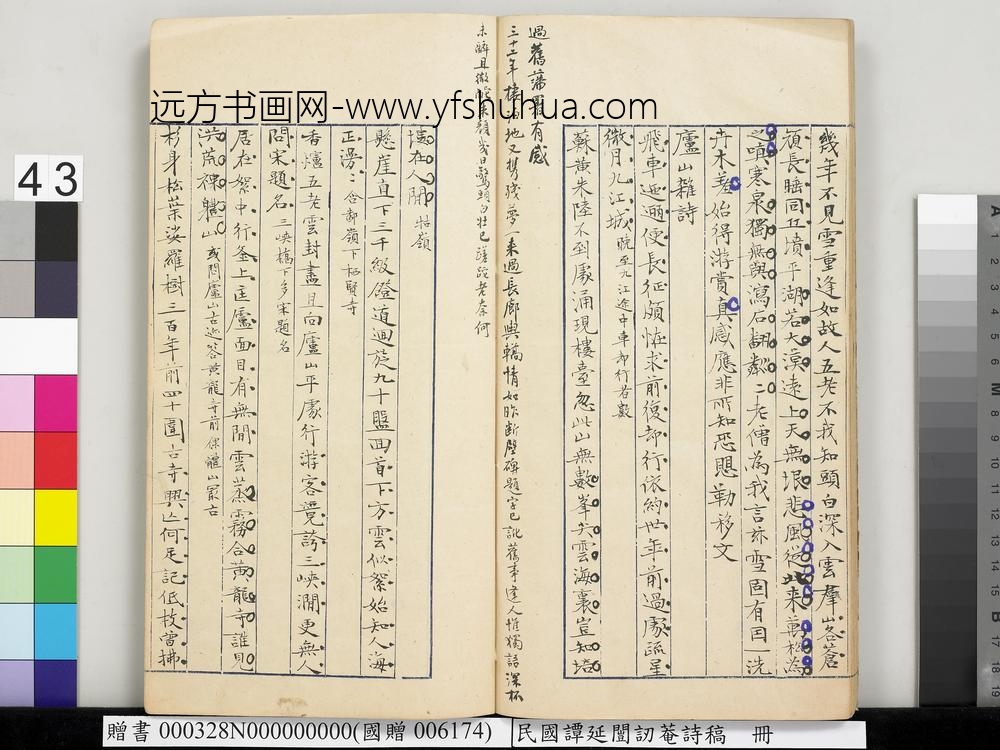 幾年不見雪重逢如故人五老不我知頭白深入雲羣峯蒼
頑長睡同丘墳平湖若大漠遠上天無垠悲風從北來萬松為
之嗔寒泉獨無與瀉石翻粼二老僧為我言亦雪固有因一洗
卉木羞始得游賞真感應非所知恐思勒移文
廬山雜詩
飛車迎迴便長征頗怪求前復却行依約世年前過處疏星
微月九江城 晚至九江途中車却行者數
蘇黄朱陸不到處涌現樓臺忽此山無數峯尖雲海裏豈知墟
過舊藩署有感
三十二年 地又 殘夢一来過長廊與 情如昨斷 碑題字已訛舊事逢人惟獨語深杯
未辭且 頹 日 頭白壯已 老奈何
墟在人間 牯嶺
懸崖直下三千級磴道迴旋九十盤回首下方雲似絮始知人海
正漫〻 含鄱嶺下栖賢寺
香爐五老雲封盡且向廬山平處行游客競誇三峽澗更無人
問宋題名 三峽橋下多宋題名
居在絮中行釜上匡廬面目有無間雲蒸霧合黄龍寺誰見
洪荒裸體山 或問廬山古迹答黄龍寺前保體山最古
杉身松葉娑羅樹三百年前四十圍古寺興亡何足記低枝嘗拂
远方书画网-www.yfshuhua.com
43
贈書 000328N000000000(國贈 006174)
民國譚延闓訒菴詩稿 冊